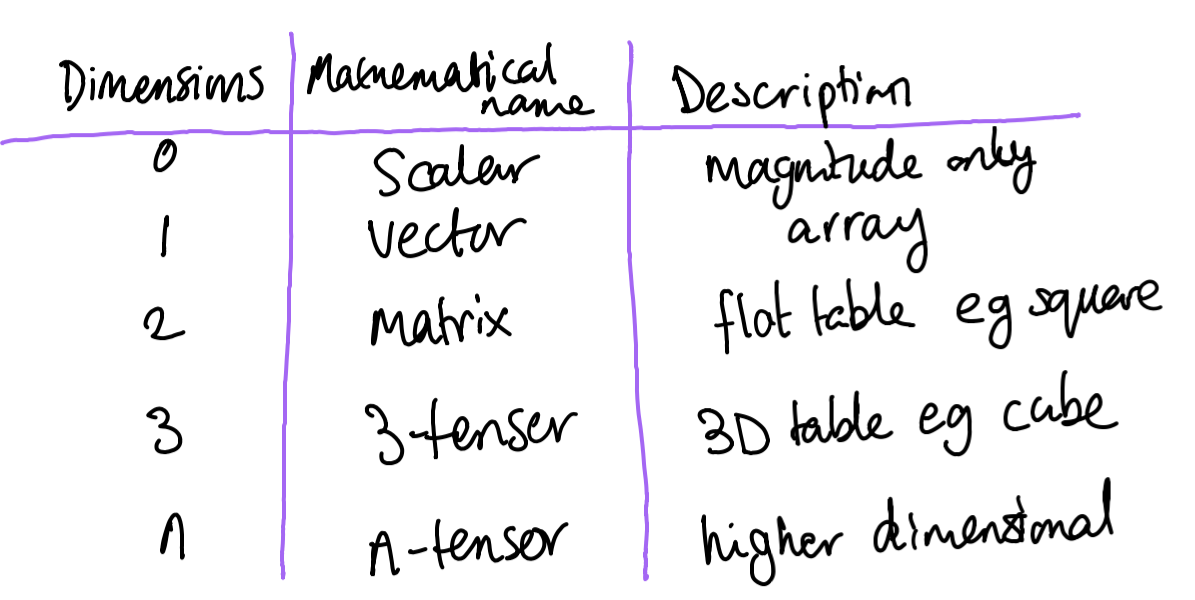 Dimensions Mathematical name Description
0 Scalar magnitude only
1 Vector array
2 Matrix flat table eg square
3 3-tenser 3D table eg cube
n n-tensor higher dimensional